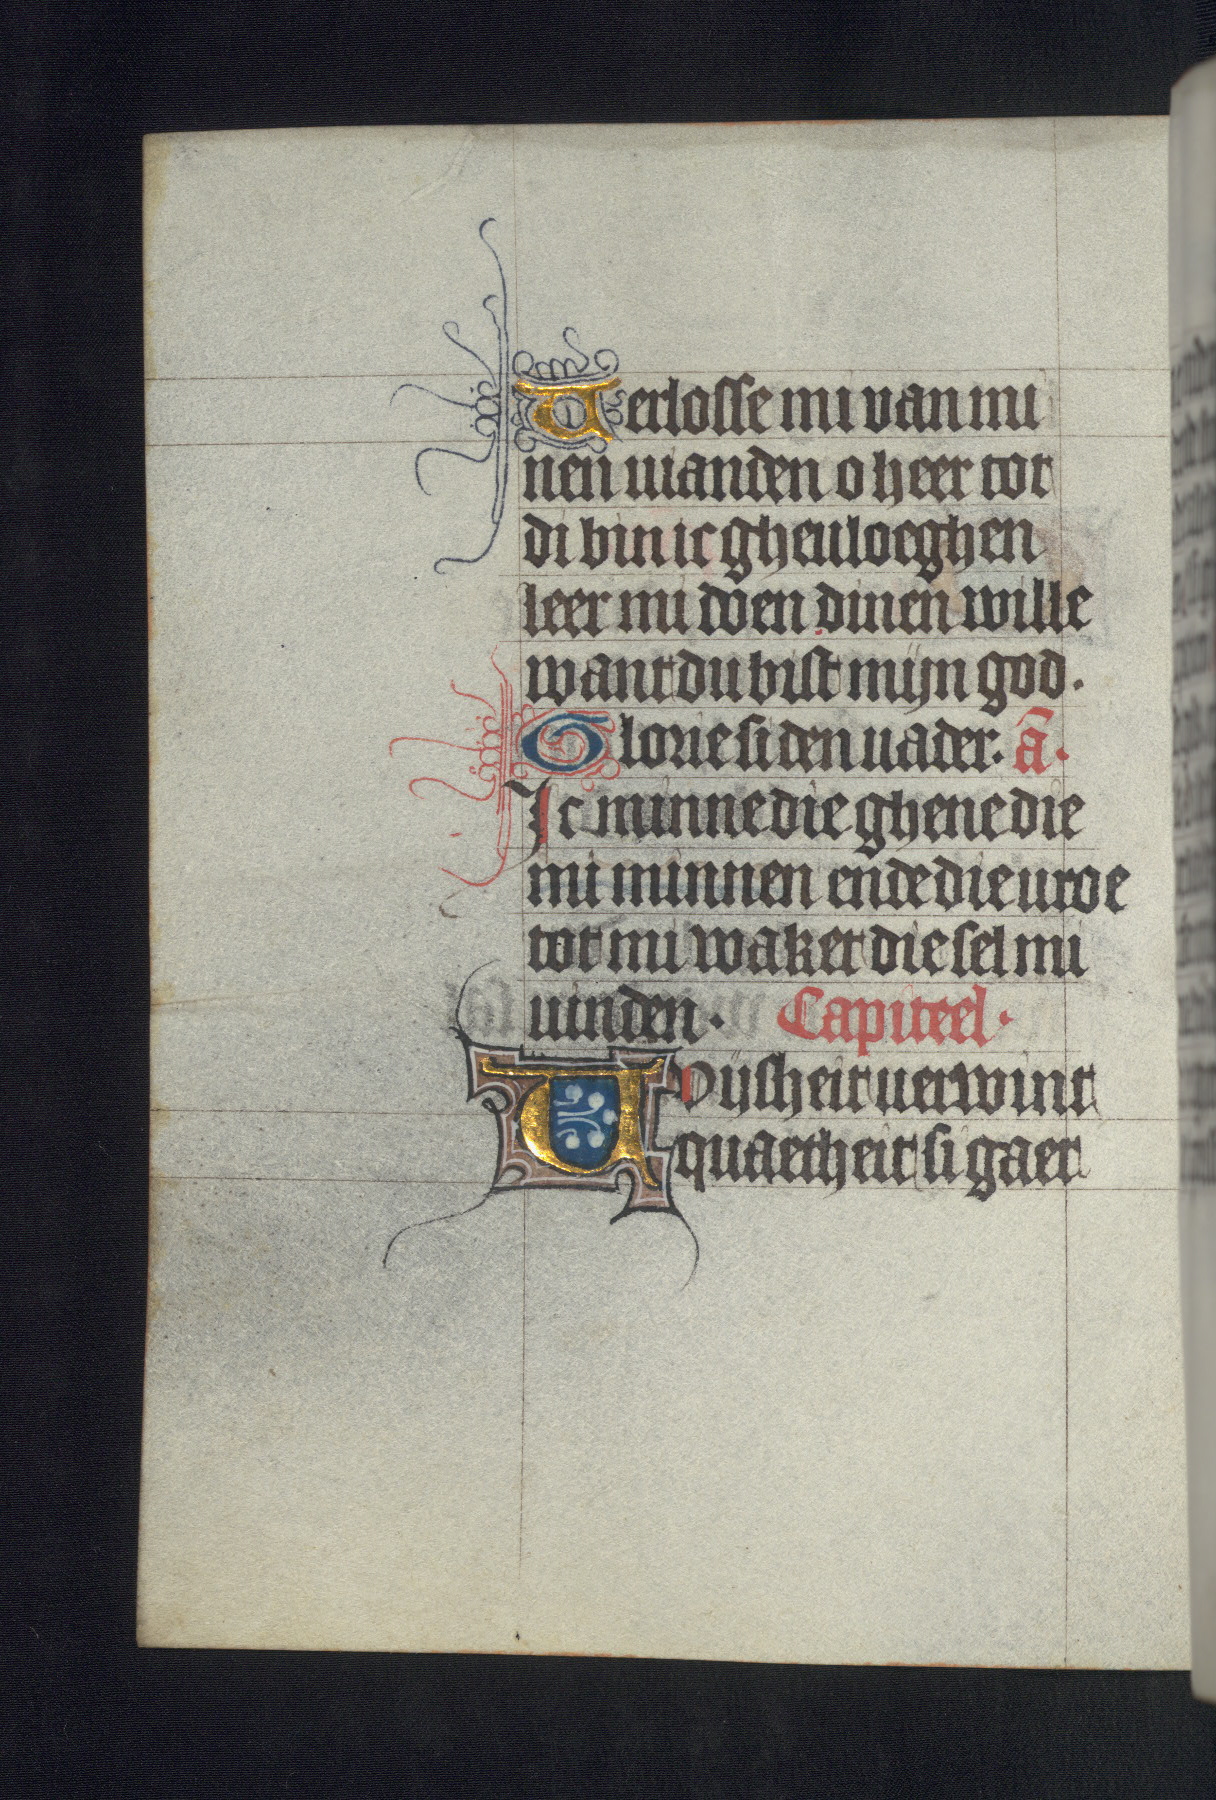 Verlosse mi van mi
nen vianden o heer tot
di bin ic gheuloeghen
leer mi doen dinen wille
want du bist mijn god.
Glorie si den uader. a̅.
Ic minne die ghene die
mi minnen ende die uroe
tot mi waket die sel mi
uinden. Capiteel.
Wijsheit uerwint
quaetheit si gaet